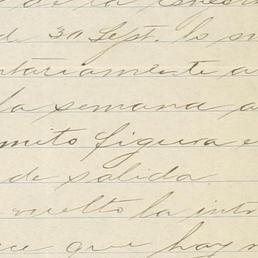 de la
de 30 Sept. lo su
ntariamente a
la semana a
mito figura e
de salida
vuelto la intr
ece que hay n